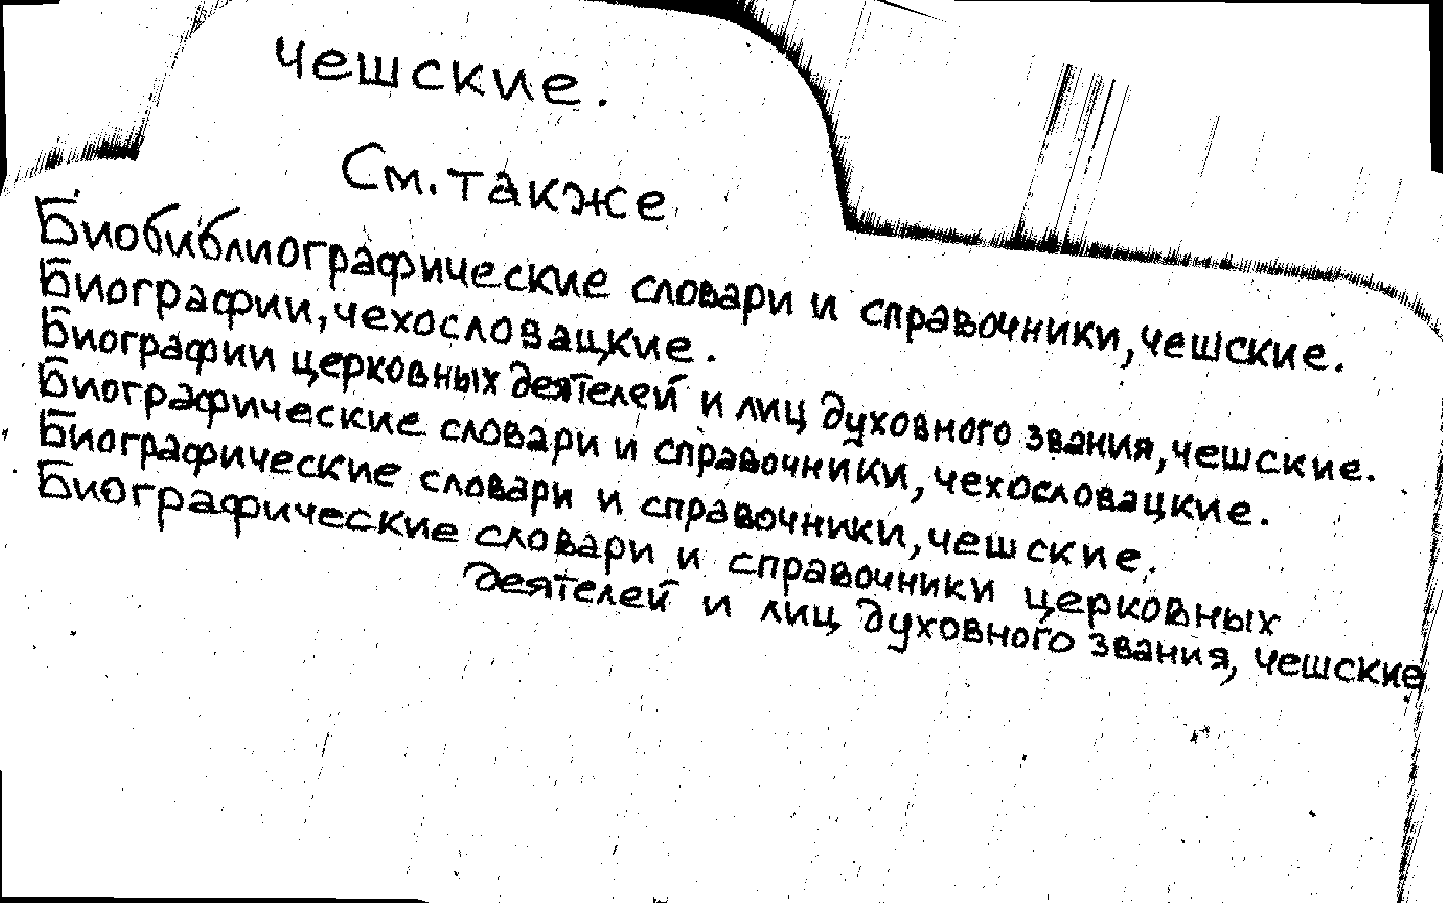 чешские.
См. также
Биобиблиографические словари и справочники, чешские.
Биографии, чехословацкие.
Биографии церковных деятелей и лиц духовного звания, чешские.
Биографические словари и справочники, чехословацкие.
Биографические словари и справочники, чешские.
Биографические словари и справочники церковных
деятелей и лиц духовного звания, чешские.